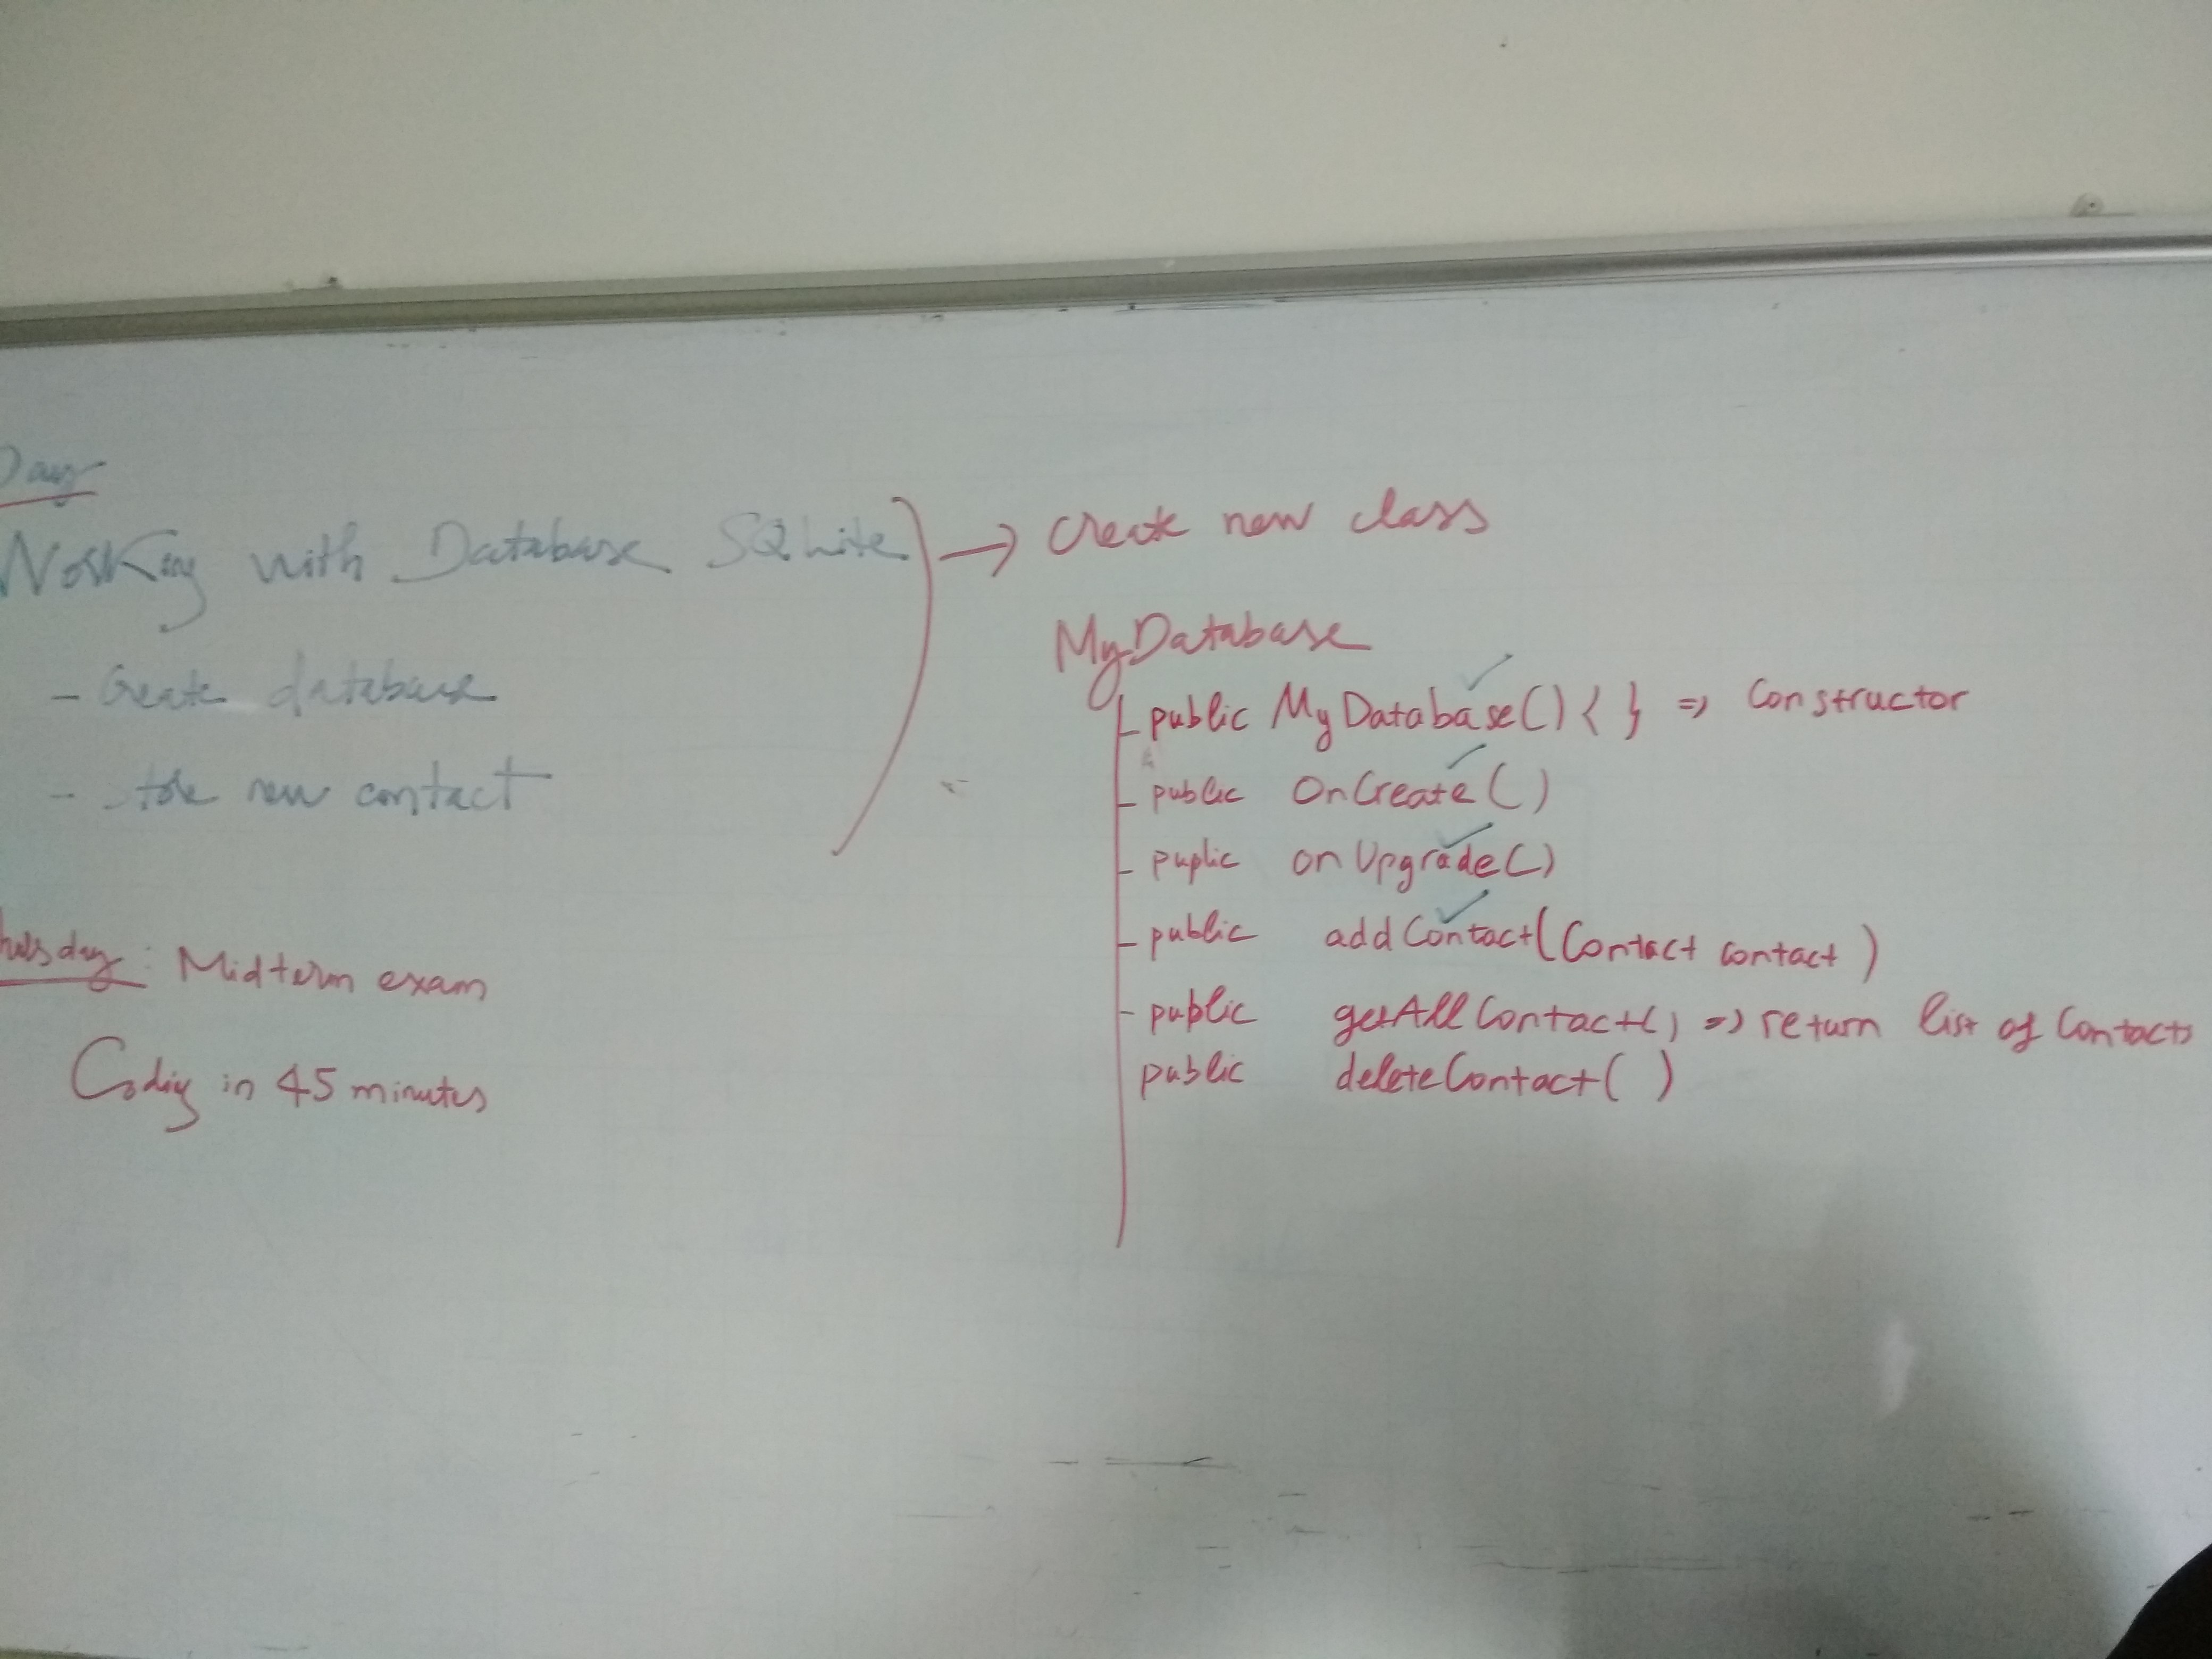 Day
Working with Database SQLite
- Create database
- store new contact
Midterm exam
Coding in 45 minutes
→ Create new class
MyDatabase
- public MyDatabase() { } => Constructor
- public OnCreate()
- puplic onUpgrade()
- public addContact(Contact contact)
- public getAllContact() => return list of Contacts
public deleteContact( )